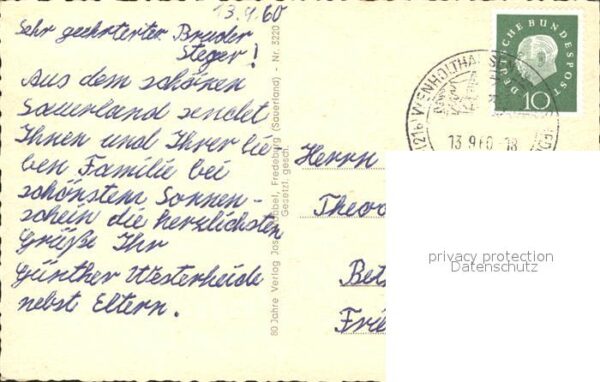 13.9.60
Sehr geehrterter Bruder
Steger!
Aus dem schönen
Sauerland sendet
Ihnen und Ihrer lie
ben Familie bei
schönstem Sonnen-
schein die herzlichsten
Grüße Ihr
Günther Westerheide
nebst Eltern.
80 Jahre Verlag Jos. Fredeburg (Sauerland) - Nr. 3220
Gesetzl. gesch.
DEUTSCHE BUNDESPOST
10
13.9.60-18
Herrn
Theod
Bet
Frie
privacy protection
Datenschutz